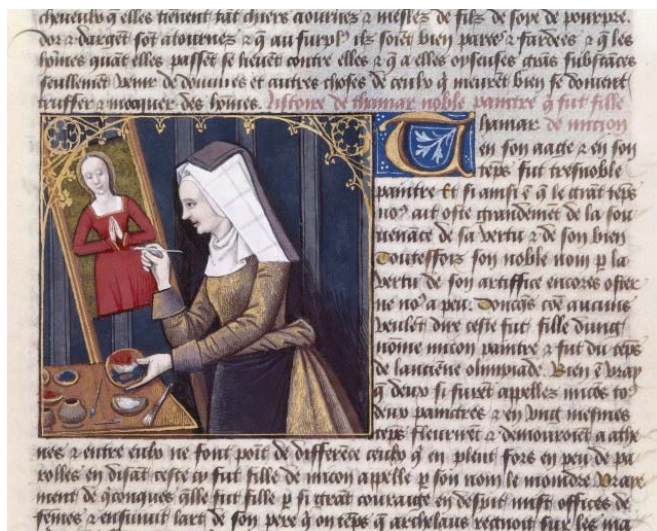 cheveulx q̃ elles tienẽt tãt chiers aournez ⁊ meslez de filz de soye de pourpre.
dor ⁊ dargẽt sõt atournez ⁊ q̃ au surpl9 ilz soiẽt bien parez ⁊ fardees ⁊ q̃ les
hõmes quãt elles passẽt se lieuẽt contre elles ⁊ q̃ a elles grãs substãces
seullemẽt de douaires et autres choses de ceulx q̃ meurẽt bien se doiuent
truffer ⁊ mocquer des hõmes. Listoire de thamar noble paintre q̃ fut fille
Thamar de micion
en son aage ⁊ en son
tẽps fut tresnoble
paintre Et si ainsi ẽ q̃ le grãt tẽps
no9 ait oste grandemẽt de la sou
uenãce de sa vertu ⁊ de son bien
Toutesfois son noble nom p la
vertu de son artiffice encores oster
ne no9 a peu. Doncq̃s cõe aucuns
veulẽt dire ceste fut fille dung
nõme micon paintre ⁊ fut du tẽps
de lanciẽne olimpiade. Bien ẽ vray
q̃ deux si furẽt appellez micõs to9
deux paintres ⁊ en vng mesmes
tẽps fleurirẽt ⁊ demouroiẽt a athe
nes ⁊ entre eulx ne font poĩt de differẽce ceulx q̃ en plẽt fors en peu de pa
rolles en disãt ceste cy fut fille de micon appelle p son nom le moindre Vraye
ment de q̃conques q̃lle fut fille p si grãt couraige en despit mist offices de
fẽmes ⁊ ensuiuit lart de son pere q̃ on tẽps q̃ archelaus regnoit sur les ma